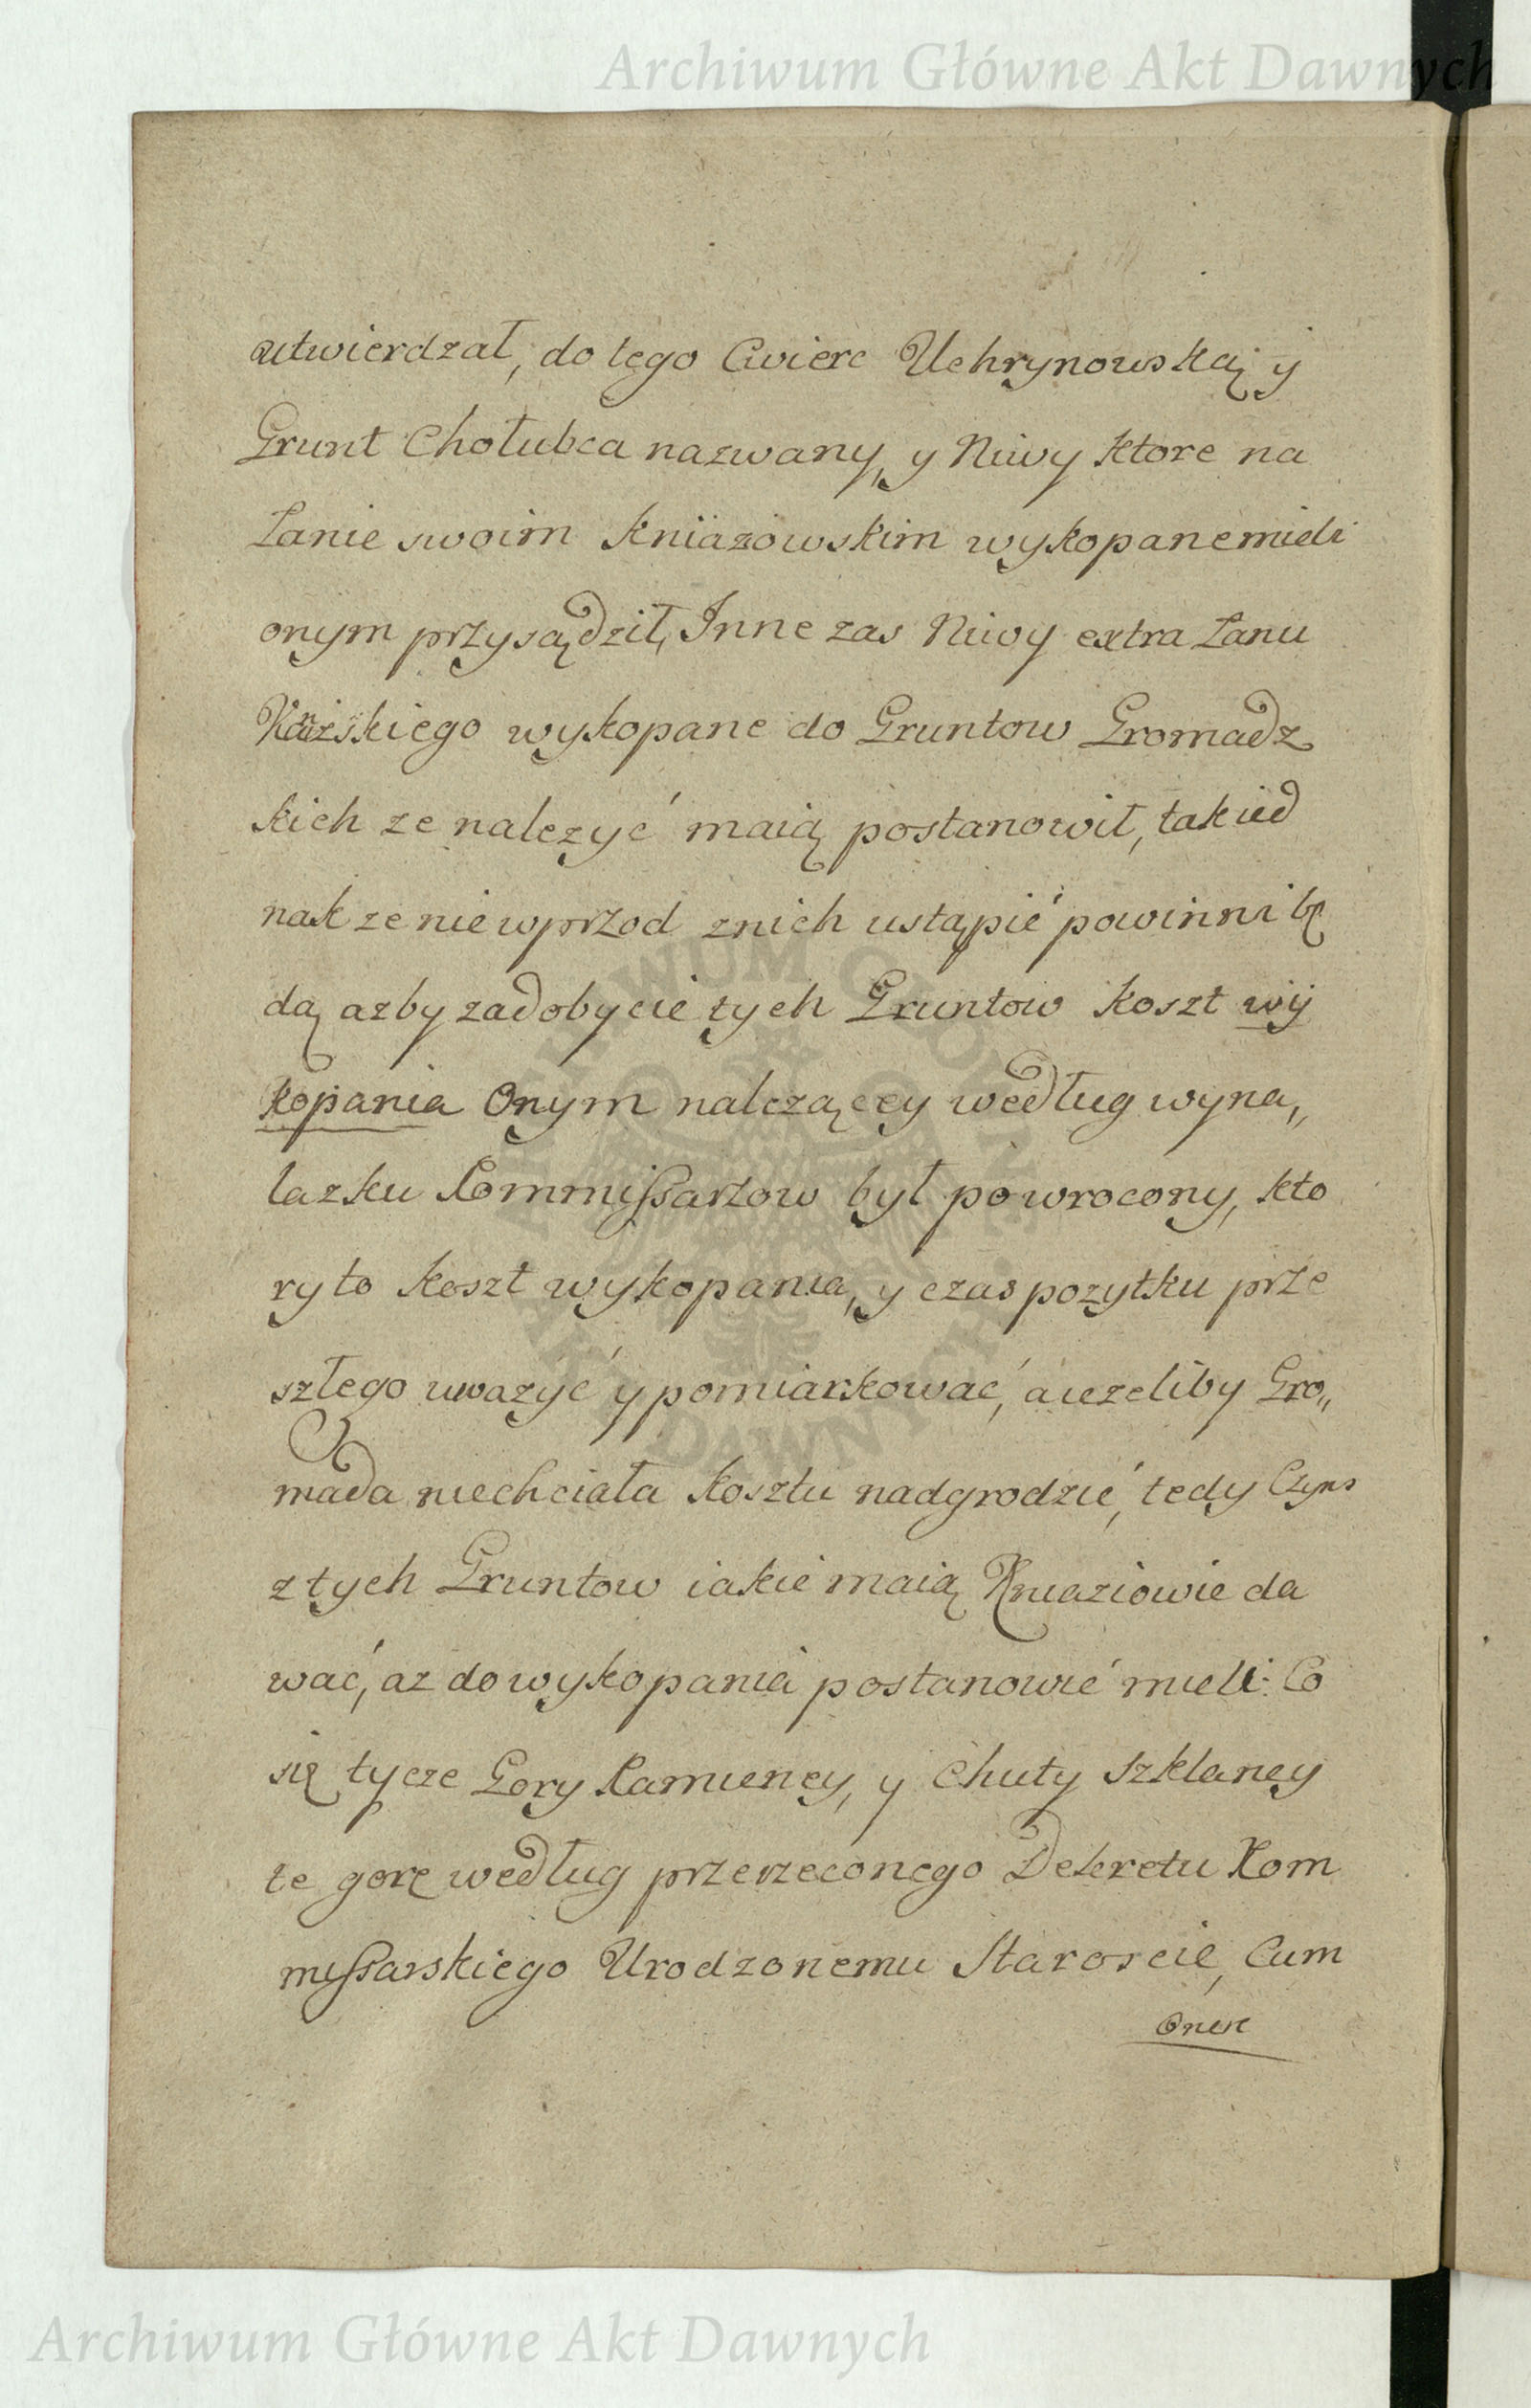 Archiwum Główne Akt Dawnych
utwierdzał, do tego Cwierc Uchrynowską y
Grunt Chołubca nazwany, y Niwy ktore na
Łanie swoim kniazowskim wykopane mieli
onym przysądził, Inne zas Niwy extra Łanu
wykopane do Gruntow Gromadz
kich ze nalezyć maią postanowił, tak ied
nak ze nie wprzod znich ustąpić powinni bę
dą azby zadobycie tych Gruntow koszt wÿ
kopania Onym nalezący według wyna„
lazku Kommissarzow był powrocony, kto
ry to koszt wykopania, y czas pozytku prze
szłego uwazyć y pomiarkować, a iezeliby Gro„
mada niechciała kosztu nadgrodzić, tedy Czyns
z tych Gruntow iakie maią Kniaziowie da
wać, az do wykopania postanowić mieli. Co
się tycze Gory Kamieney, y Chuty Szklaney
te gorę według przerzeconego Dekretu Kom
missarskiego Urodzonemu Staroscie, Cum
Onere
ARCHIWUM GŁÓWNE AKT DAWNYCH
Archiwum Główne Akt Dawnych